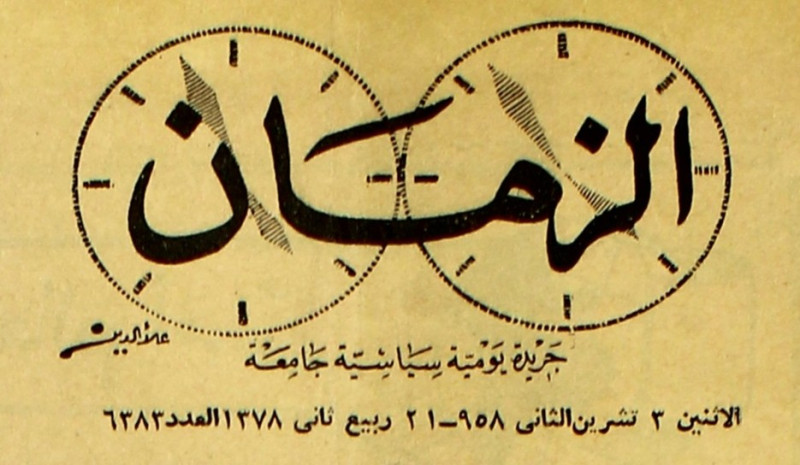 الزمان
علاءالدين
جريدة يومية سياسية جامعة
الاثنين ٣ تشرين الثانى ٩٥٨ــ٢١ ربيع ثانى ١٣٧٨ العدد ٦٣٨٣